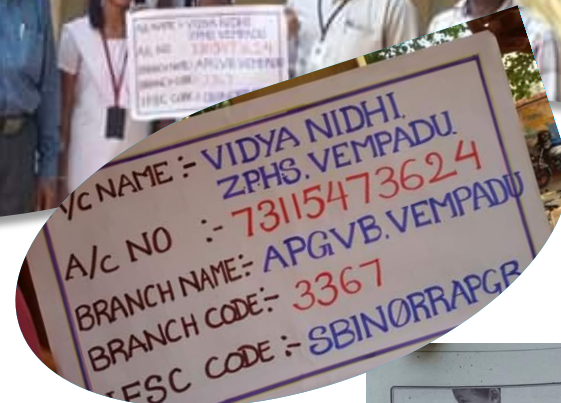 A/C NAME :- VIDYA NIDHI
ZPHS. VEMPADU
A/C NO 73115473624
BRANCH NAME:- APGVB. VEMPADU
BRANCH CODE:- 3367
IFSC CODE :-
/C NAME :- VIDYA NIDHI.
ZPHS. VEMPADU.
A/C NO :- 73115473624
BRANCH NAME:- APGVB. VEMPADU
BRANCH CODE:- 3367
IFSC CODE :- SBINØRRAPGB